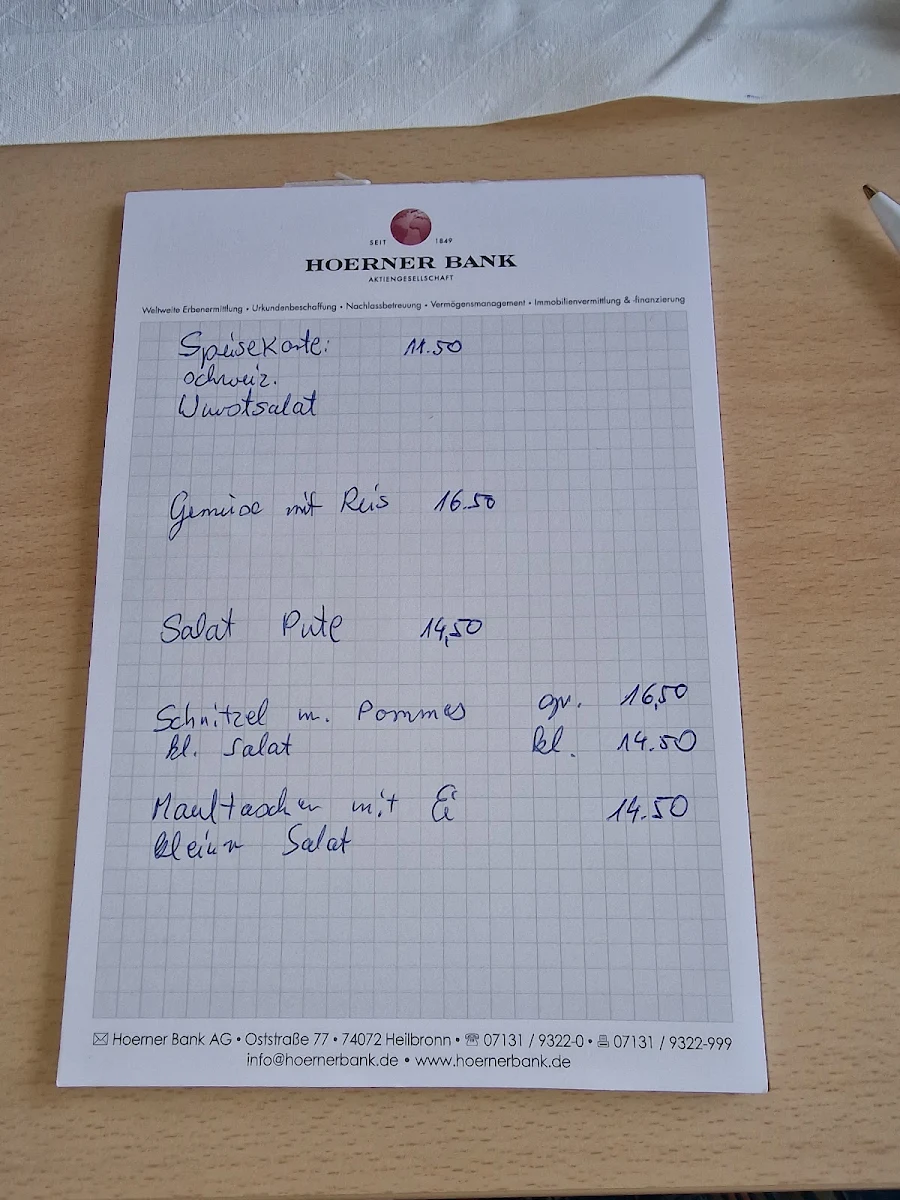 SEIT 1849
HOERNER BANK
AKTIENGESELLSCHAFT
Weltweite Erbenermittlung • Urkundenbeschaffung • Nachlassbetreuung • Vermögensmanagement • Immobilienvermittlung & -finanzierung
Speisekarte: 11.50
schweiz.
Wurstsalat
Gemüse mit Reis 16.50
Salat Pute 14,50
Schnitzel m. Pommes gr. 16,50
kl. Salat kl. 14.50
Maultaschen mit Ei 14.50
kleiner Salat
Hoerner Bank AG • Oststraße 77 • 74072 Heilbronn • ☏ 07131 / 9322-0 • 07131 / 9322-999
info@hoernerbank.de • www.hoernerbank.de